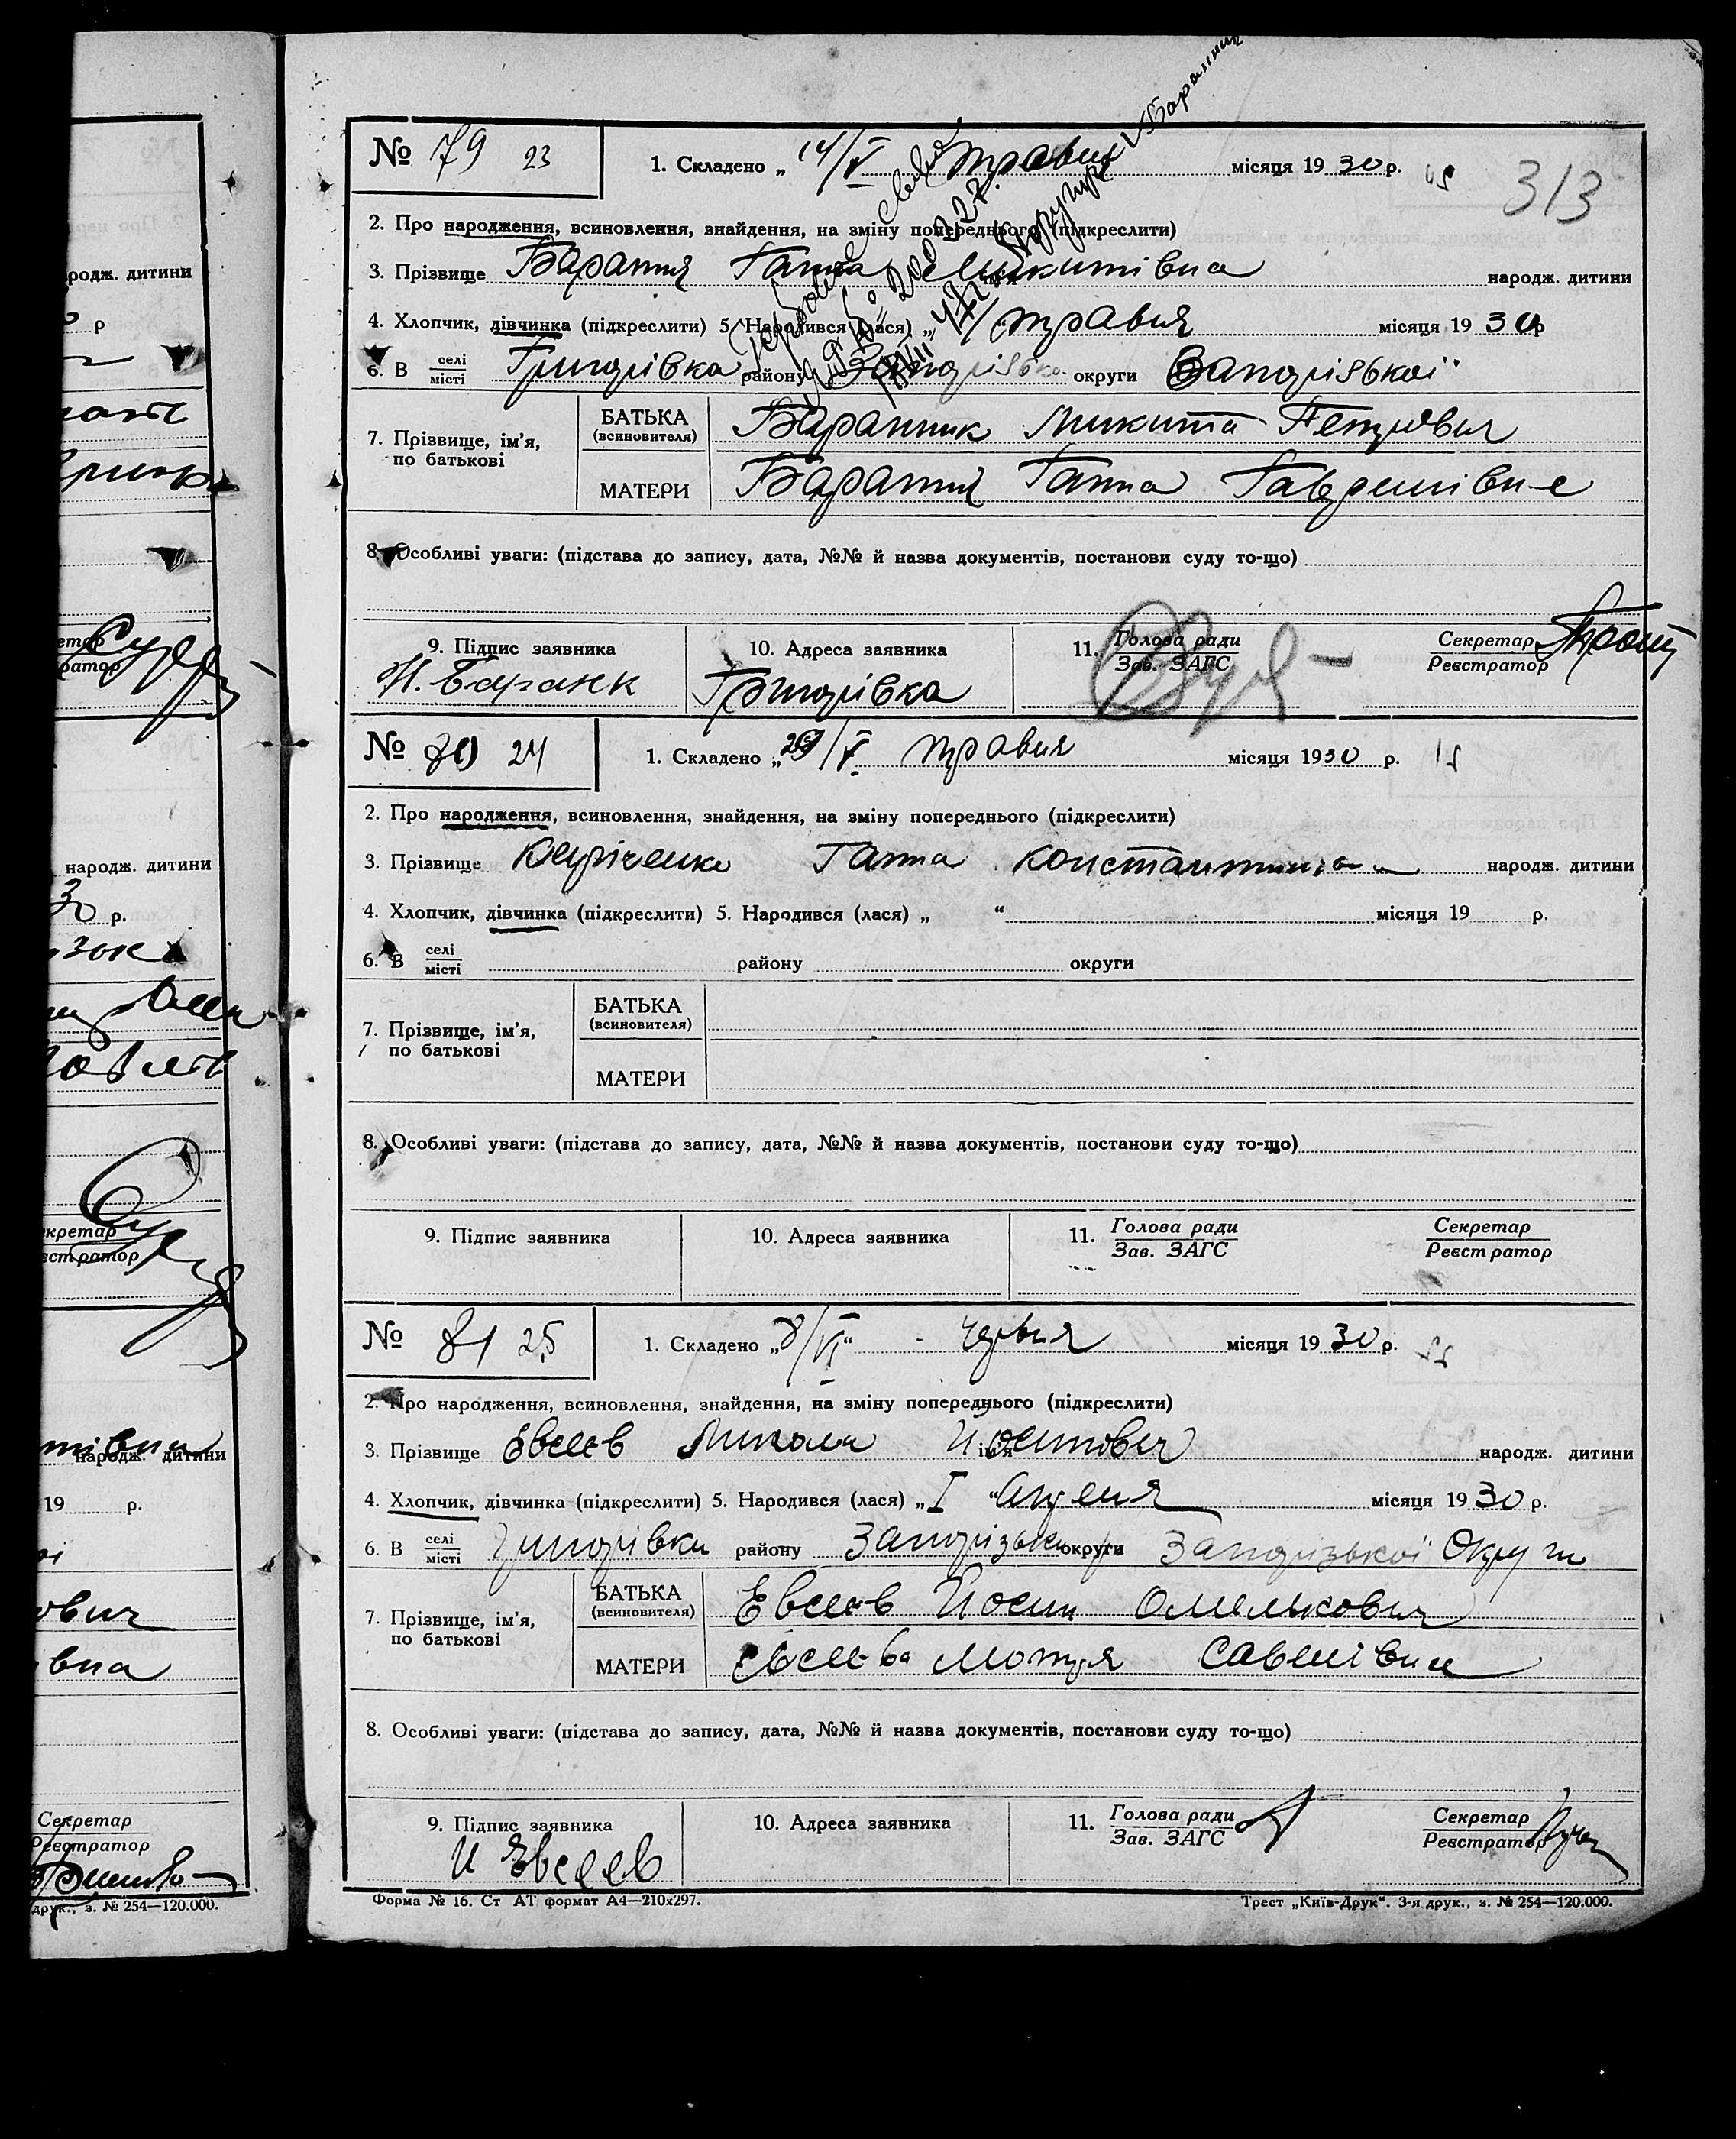 родж. дитини
р
етар
ратор
народж. дитини
30 р.
кретар
єстратор
народж. дитини
19 р.
ович
вна
Секретар
Реєстратор
друк., з. № 254—120.000.
№ 79 23
1. Складено „ 14/V травня місяця 1930 р.
313
2. Про народження, всиновлення, знайдення, на зміну попереднього (підкреслити)
3. Прізвище Баранник Ганна Микитівна народж. дитини
4. Хлопчик, дівчинка (підкреслити) 5. Народився (лася) „ травня місяця 1930 р
6. В селі місті Григорівка району округи Запорізької
7. Прізвище, ім’я, по батькові
БАТЬКА (всиновителя) Баранник Микита Петрович
МАТЕРИ Баранник Ганна Гаврилівна
8. Особливі уваги: (підстава до запису, дата, №№ й назва документів, постанови суду то-що)
9. Підпис заявника
10. Адреса заявника
11. Голова ради
Зав. ЗАГС
Секретар
Реєстратор
Н. Баранк
Григорівка
№ 80 24
1. Складено „ /V травня місяця 1930 р.
2. Про народження, всиновлення, знайдення, на зміну попереднього (підкреслити)
3. Прізвище Ганна народж. дитини
4. Хлопчик, дівчинка (підкреслити) 5. Народився (лася) „ “ місяця 19 р.
6. В селі місті району округи
7. Прізвище, ім’я, по батькові
БАТЬКА (всиновителя)
МАТЕРИ
8. Особливі уваги: (підстава до запису, дата, №№ й назва документів, постанови суду то-що)
9. Підпис заявника
10. Адреса заявника
11. Голова ради
Зав. ЗАГС
Секретар
Реєстратор
№ 81 25
1. Складено „8/VI“ червня місяця 1930 р.
2. Про народження, всиновлення, знайдення, на зміну попереднього (підкреслити)
3. Прізвище Євсеєв Микола Йосипович ім’я народж. дитини
4. Хлопчик, дівчинка (підкреслити) 5. Народився (лася) „I “ місяця 1930 р.
6. В селі місті Григорівка району Запорізької округи Запорізької Округи
7. Прізвище, ім’я, по батькові
БАТЬКА (всиновителя) Евсеєв Йосип Омелькович
МАТЕРИ Євсеєва Мотря Савелівна
8. Особливі уваги: (підстава до запису, дата, №№ й назва документів, постанови суду то-що)
9. Підпис заявника
10. Адреса заявника
11. Голова ради
Зав. ЗАГС
Секретар
Реєстратор
И Евсеев
Форма № 16. Ст АТ формат А4—210х297.
Трест „Київ-Друк“. 3-я друк., з. № 254—120.000.